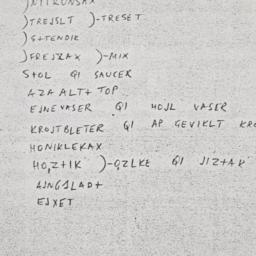 )TREJSLT )-TRESET
)S+TENDIK
)FREJZAX )-MIX
STOL QI SAUCER
AZA ALT+ TOP
EJNE VASER QI HOJL VASER
KROJTBLETER QI AP GEVIKLT
HONIKLEKAX
HO,Z+IK )-GZLKE QI
AJNGSLAD+
EJXET